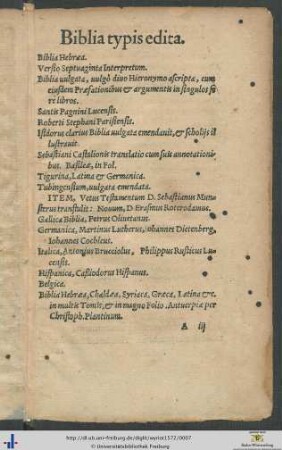 Biblia typis edita.
Biblia Hebræa.
Versio Septuaginta Interpretum.
Biblia uulgata, uulgò diuo Hieronymo ascripta, cum
eiusdem Præfationibus & argumentis in singulos fe
re libros.
Santis Pagnini Lucensis.
Roberti Stephani Parisiensis.
Isidorus clarius Biblia uulgata emendauit, & scholijs il
lustrauit.
Sebastiani Castalionis translatio cum suis annotationi-
bus. Basileæ, in Fol.
Tigurina, Latina & Germanica.
Tubingensium, uulgata emendata.
ITEM, Vetus Testamentum D. Sebastianus Mun-
sterus transtulit: Nouum, D. Erasmus Roterodamus.
Gallica Biblia, Petrus Oliuetanus.
Germanica, Martinus Lutherus, Iohannes Dietenberg,
Iohannes Cocleus.
Italica, Antonius Brucciolus, Philippus Rusticus Lu-
censis.
Hispanica, Cassiodorus Hispanus.
Belgica.
Biblia Hebræa, Chaldæa, Syriaca, Græca, Latina &c.
in multis Tomis, & in magno Folio. Antuerpiæ per
Christoph. Plantinum.
A iij
http://dl.ub.uni-freiburg.de/diglit/
© Universitätsbibliothek Freiburg